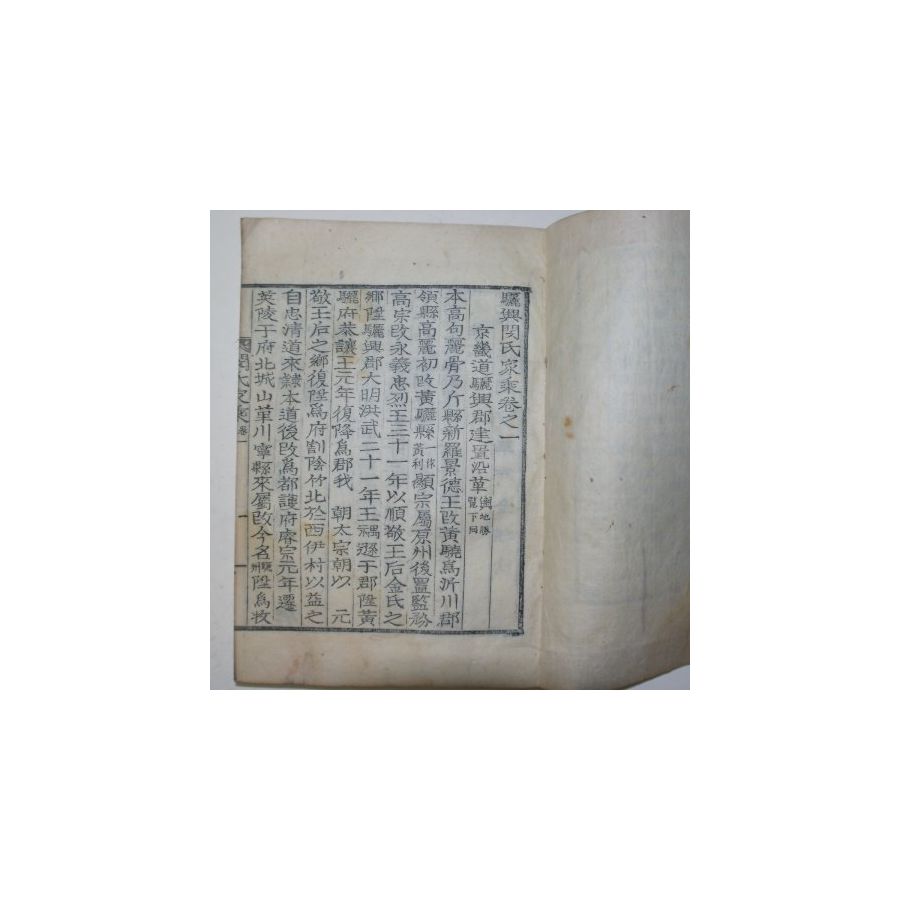 驪興閔氏家乘卷之一
京畿道驪興郡建置沿革 輿地勝覽下同
本高句麗骨乃斤縣新羅景德王改黃驍爲沂川郡
領縣高麗初改黃驪縣 一作黃利 顯宗屬原州後置監務
高宗改永義忠烈王三十一年以順敬王后金氏之
鄕陞驪興郡大明洪武二十一年王禑遜于郡陞黃
驪府恭讓王元年復降爲郡我 朝太宗朝以 元
敬王后之鄕復陞爲府割陰竹北於西伊村以益之
自忠淸道來隷本道後改爲都護府睿宗元年遷
英陵于府北城山革川寧縣來屬改今名 驪州 陞爲牧
閔氏家乘 卷一 一